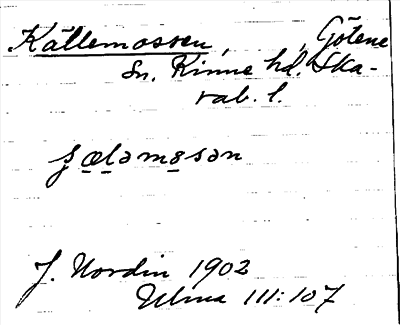 Källemossen, Götene
sn. Kinne hd. Ska-
rab. l.
ʂælǝmɞsǝn
J. Nordin 1902
Ulma 111:107